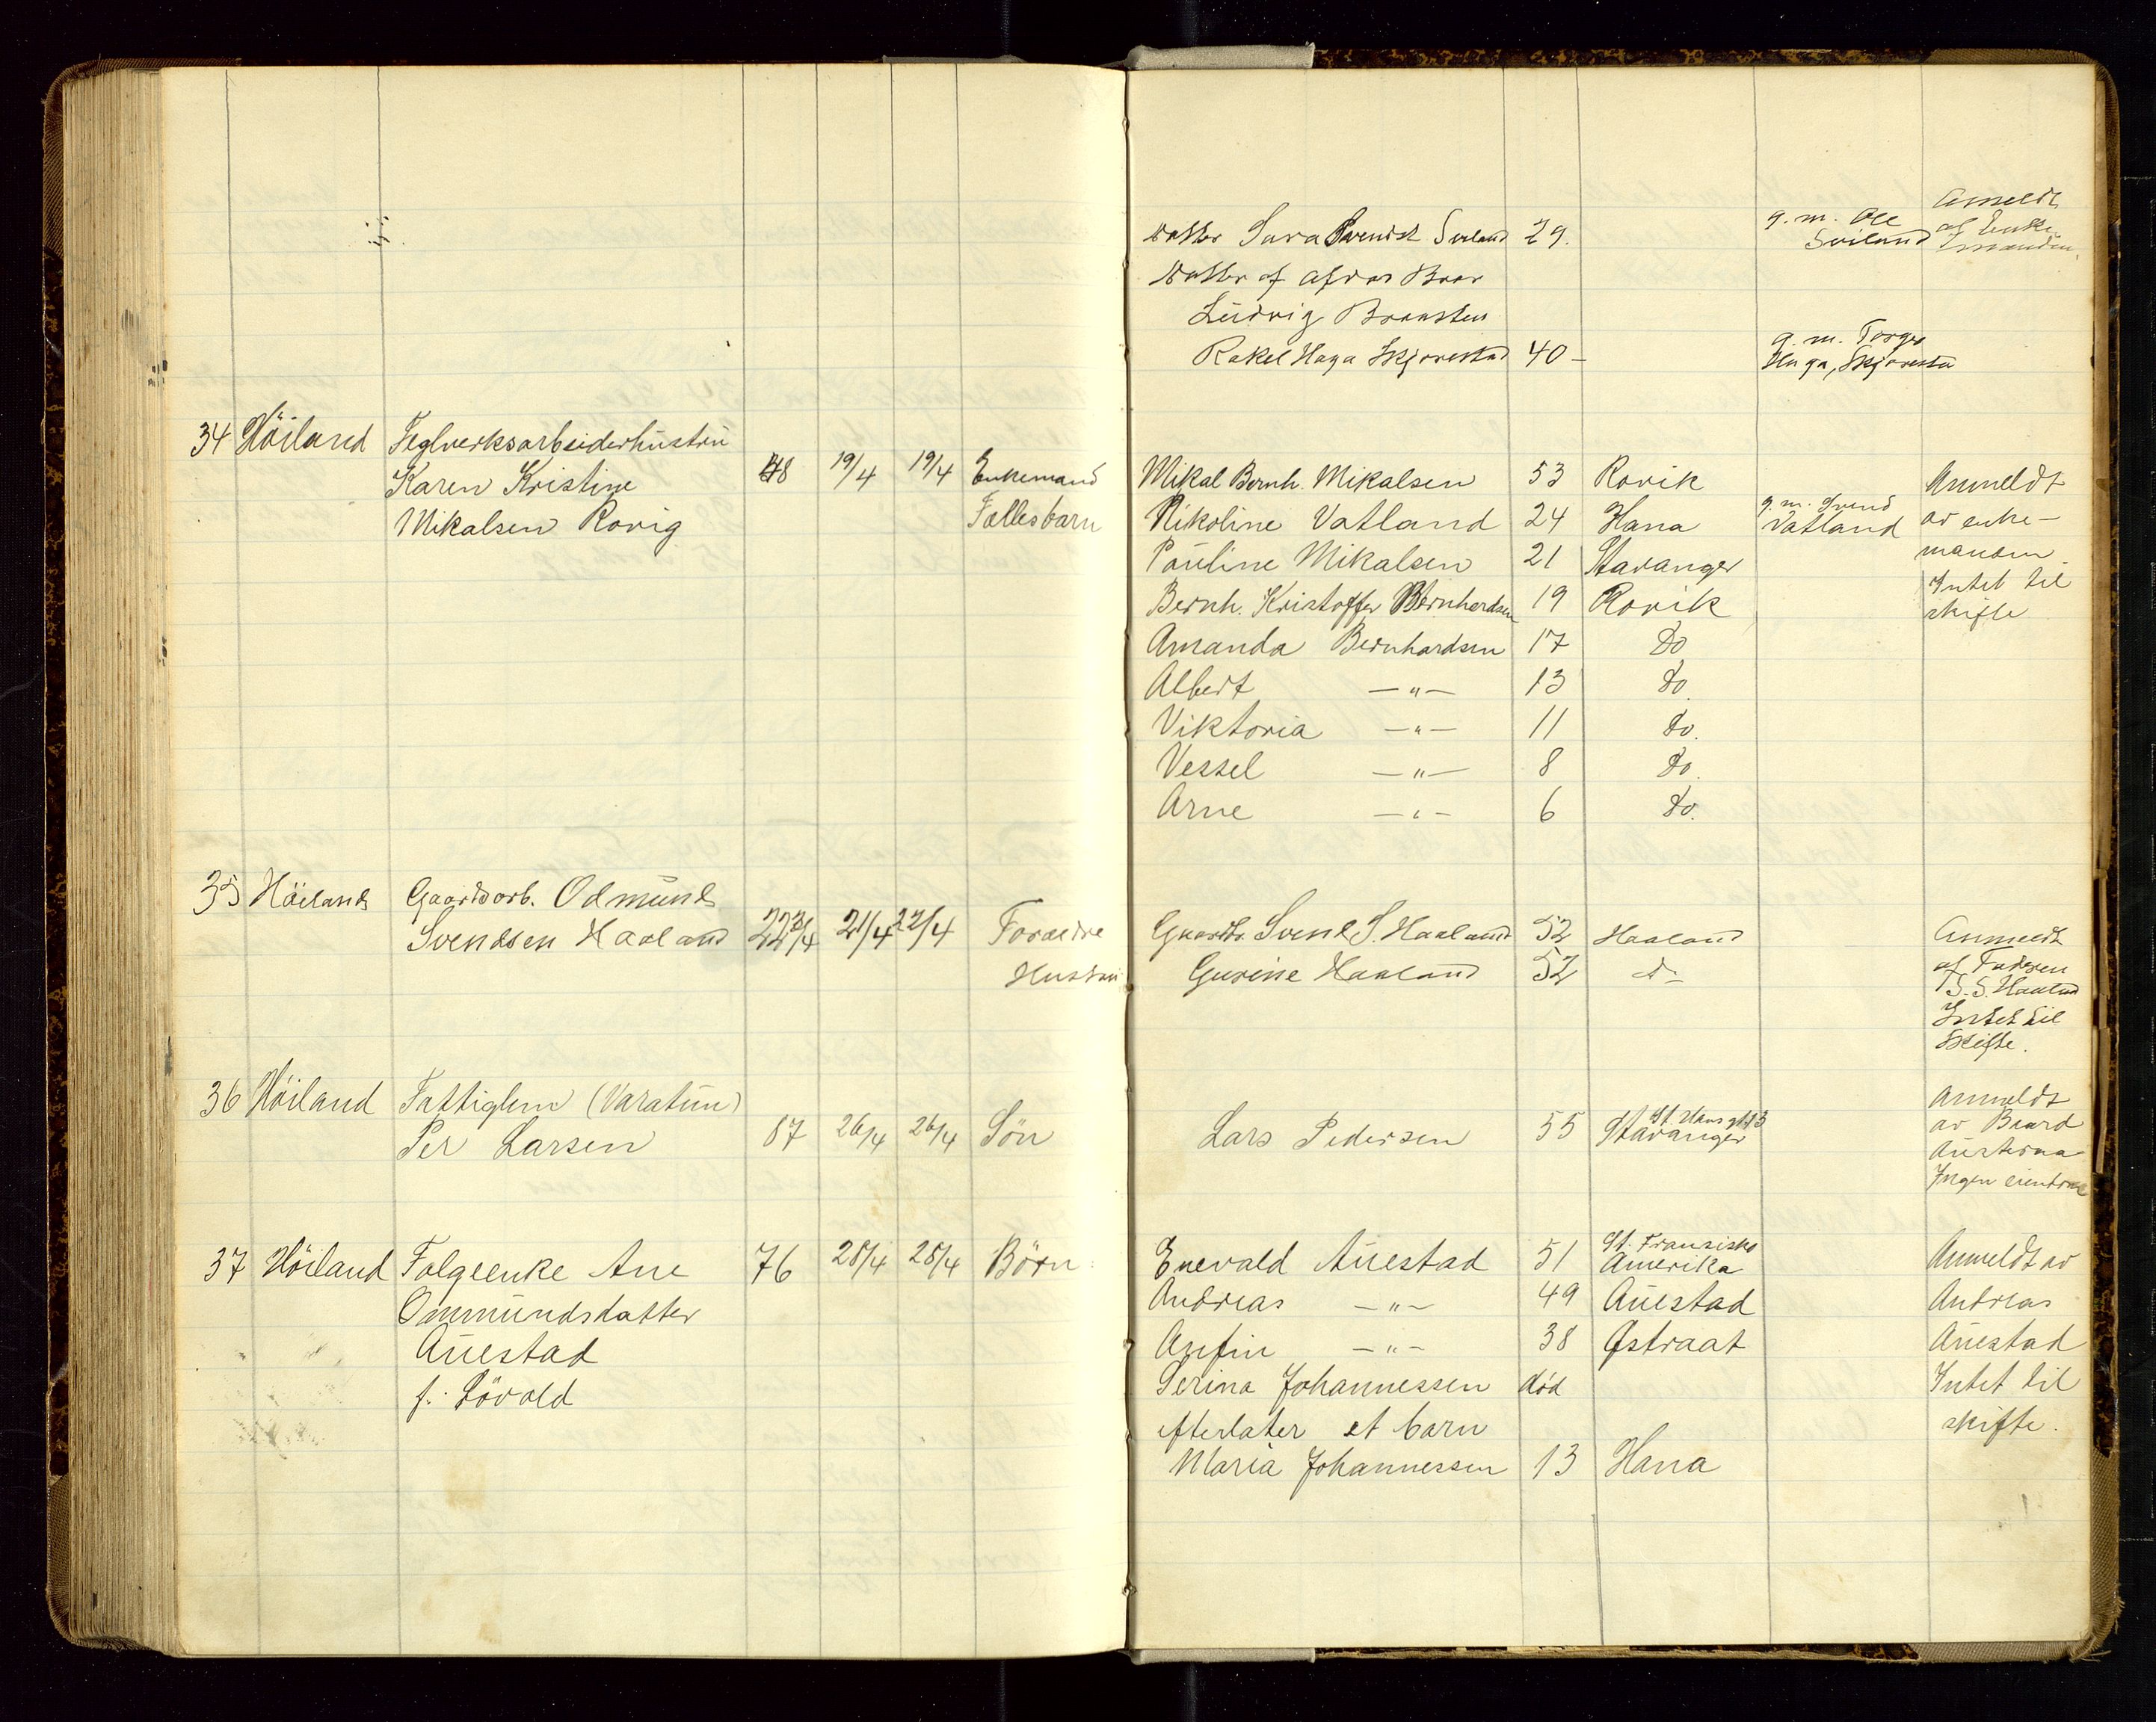 Datter Sara Svendst Sviland 29. g. m. Ole Sviland Anmeldt af Enke-manden.
Datter af afdød Bror
Ludvig Braasten
Rakel Haga Skjævestad 40 – g. m. Torger Haga, Skjævesta
34 Höiland Teglverksarbeiderhustru
Karen Kristine 48 19/4 19/4 Enkemand Mikal Bernh. Mikalsen 53 Rovik Anmeldt
Mikalsen Rovig Fællesbarn Nikoline Vatland 24 Hana g. m. Svend Vatland av enke-
Pauline Mikalsen 21 Stavanger manden
Bernh. Kristoffer Bernhardsen 19 Rovik Intet til skifte
Amanda Bernhardsen 17 Do
Albert –"– 13 do.
Viktoria –"– 11 do.
Vessel –"– 8 do.
Arne –"– 6 do.
35 Höiland Gaardarb. Odmund
Svendsen Haaland 22 21/4 22/4 Forældre Gaardbr. Svend S. Haaland 52 Haaland Anmeldt
Hustru Gurine Haaland 52 do af Faderen
S. S. Haaland
Intet til
Skifte.
36 Höiland Fattiglem (Varatun) Anmeldt
Per Larsen 87 26/4 26/4 Sön Lars Pedersen 55 St. Hansgt 13 Stavanger av Baard
Austernaa
Ingen eiendele
37 Höiland Folgeenke Ane 76 28/4 28/4 Börn: Enevald Auestad 51 St. Fransisko Amerika Anmeldt av
Ommundsdatter Andreas –"– 49 Auestad Andreas
Auestad Anfin –"– 38 Østraat Auestad
f. Lövold Serina Johannessen död Intet til
efterlater et barn skifte.
Maria Johannessen 13 Hana